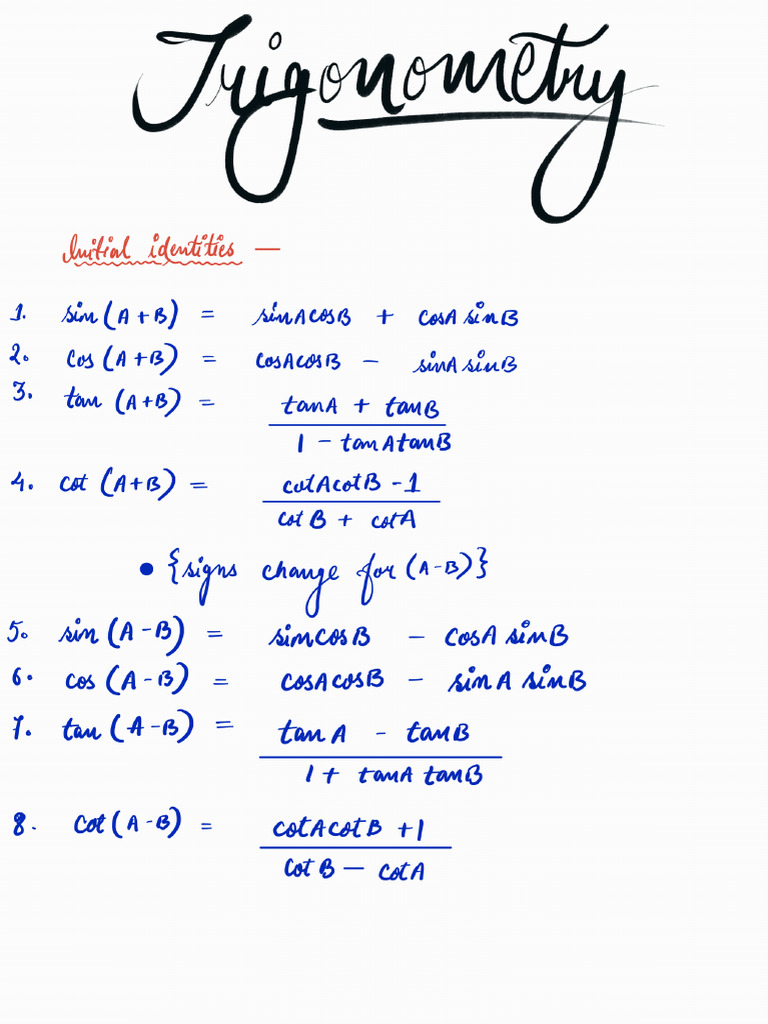 Trigonometry
Initial identities —
1. sin(A+B) = sinAcosB + cosA sinB
2. cos(A+B) = cosAcosB - sinA sinB
3. tan(A+B) = tanA + tanB
1 - tanAtanB
4. cot(A+B) = cotAcotB -1
cotB + cotA
• {signs change for (A-B)}
5. sin(A-B) = sincosB - cosA sinB
6. cos(A-B) = cosAcosB - sinA sinB
7. tan(A-B) = tanA - tanB
1 + tanA tanB
8. cot(A-B) = cotAcotB +1
cotB — cotA